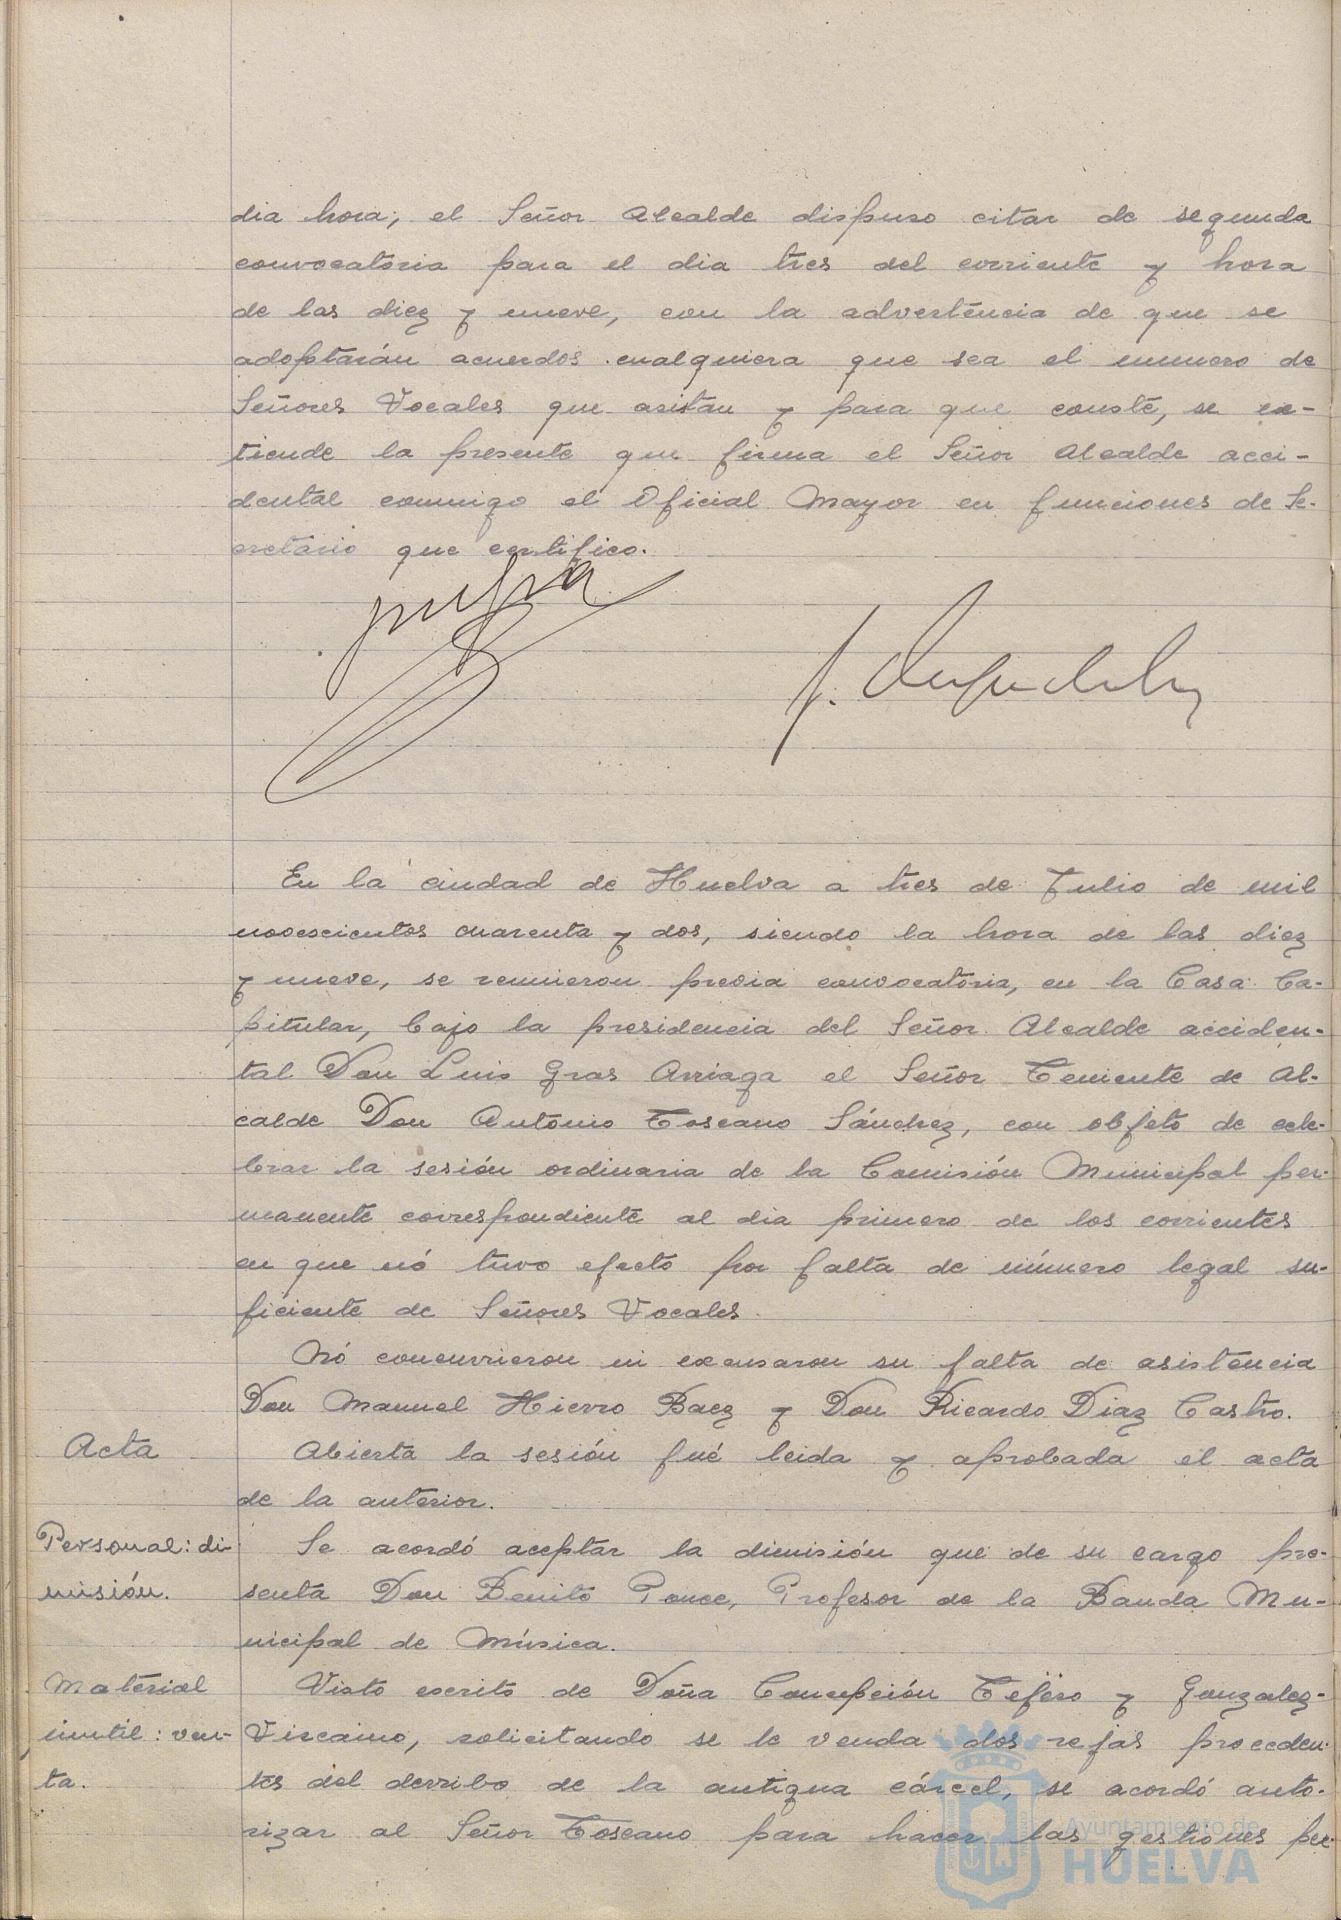 dia hora; el Señor Alcalde dispuso citar de segunda
convocatoria para el dia tres del corriente y hora
de las diez y nueve, con la advertencia de que se
adoptarán acuerdos cualquiera que sea el numero de
Señores Vocales que asistan y para que conste, se ex-
tiende la presente que firma el Señor Alcalde acci-
dental conmigo el Oficial Mayor en funciones de Se-
cretario que certifico.
En la ciudad de Huelva a tres de Julio de mil
novescientos cuarenta y dos, siendo la hora de las diez
y nueve, se reunieron previa convocatoria, en la Casa Ca-
pitular, bajo la presidencia del Señor Alcalde acciden-
tal Don Luis Gras Arriaga el Señor Teniente de Al-
calde Don Antonio Toscano Sánchez, con objeto de cele-
brar la sesión ordinaria de la Comisión Municipal per-
manente correspondiente al dia primero de los corrientes
en que nó tuvo efecto por falta de número legal su-
ficiente de Señores Vocales.
Nó concurrieron ni excusaron su falta de asistencia
Don Manuel Hierro Baez y Don Ricardo Diaz Castro.
Acta
Abierta la sesión fué leida y aprobada el acta
de la anterior.
Personal: di-
misión.
Se acordó aceptar la dimisión que de su cargo pre-
senta Don Benito Ponce, Profesor de la Banda Mu-
nicipal de Música.
Material
inutil: ven-
ta.
Visto escrito de Doña Concepción Tejero y Gonzalez-
Viscaino, solicitando se le venda dos rejas proceden-
tes del derribo de la antigua cárcel, se acordó auto-
rizar al Señor Toscano para hacer las gestiones per-
Ayuntamiento de
HUELVA